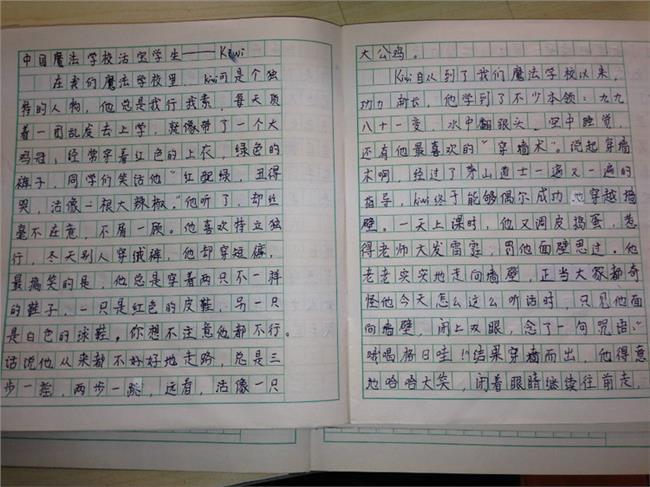 中国魔法学校活宝学生——Kiwi
在我们魔法学校里，Kiwi可是个独
特的人物，他总是我行我素，每天顶
着一团乱发去上学，就像带了一个大
鸡冠，经常穿着红色的上衣，绿色的
裤子，同学们笑话他“红配绿，丑得
哭，活像一根大辣椒。”他听了，却丝
毫不在意，不屑一顾。他喜欢特立独
行，冬天别人穿绒裤，他却穿短裤，
最搞笑的是，他总是穿着两只不一样
的鞋子，一只是红色的皮鞋，另一只
是白色的球鞋。你想不注意他都不行。
话说他从来都不好好地走路，总是三
步一蹦，两步一跳，远看，活像一只
大公鸡。
Kiwi自从到了我们魔法学校以来，
功力渐长，他学到了不少本领：九九
八十一变、水中翻跟头、空中睡觉，
还有他最喜欢的“穿墙术”。说起穿墙
术啊，经过了茅山道士一遍又一遍的
指导，Kiwi终于能够偶尔成功地穿越墙
壁。一天上课时，他又调皮捣蛋，惹
得老师大发雷霆，罚他面壁思过。他
老老实实地走向墙壁，正当大家都奇
怪他今天怎么这么听话时，只见他面
向墙壁，闭上双眼，念了一句咒语“
哇！”结果穿墙而出，他得意
地哈哈大笑，闭着眼睛继续往前走，